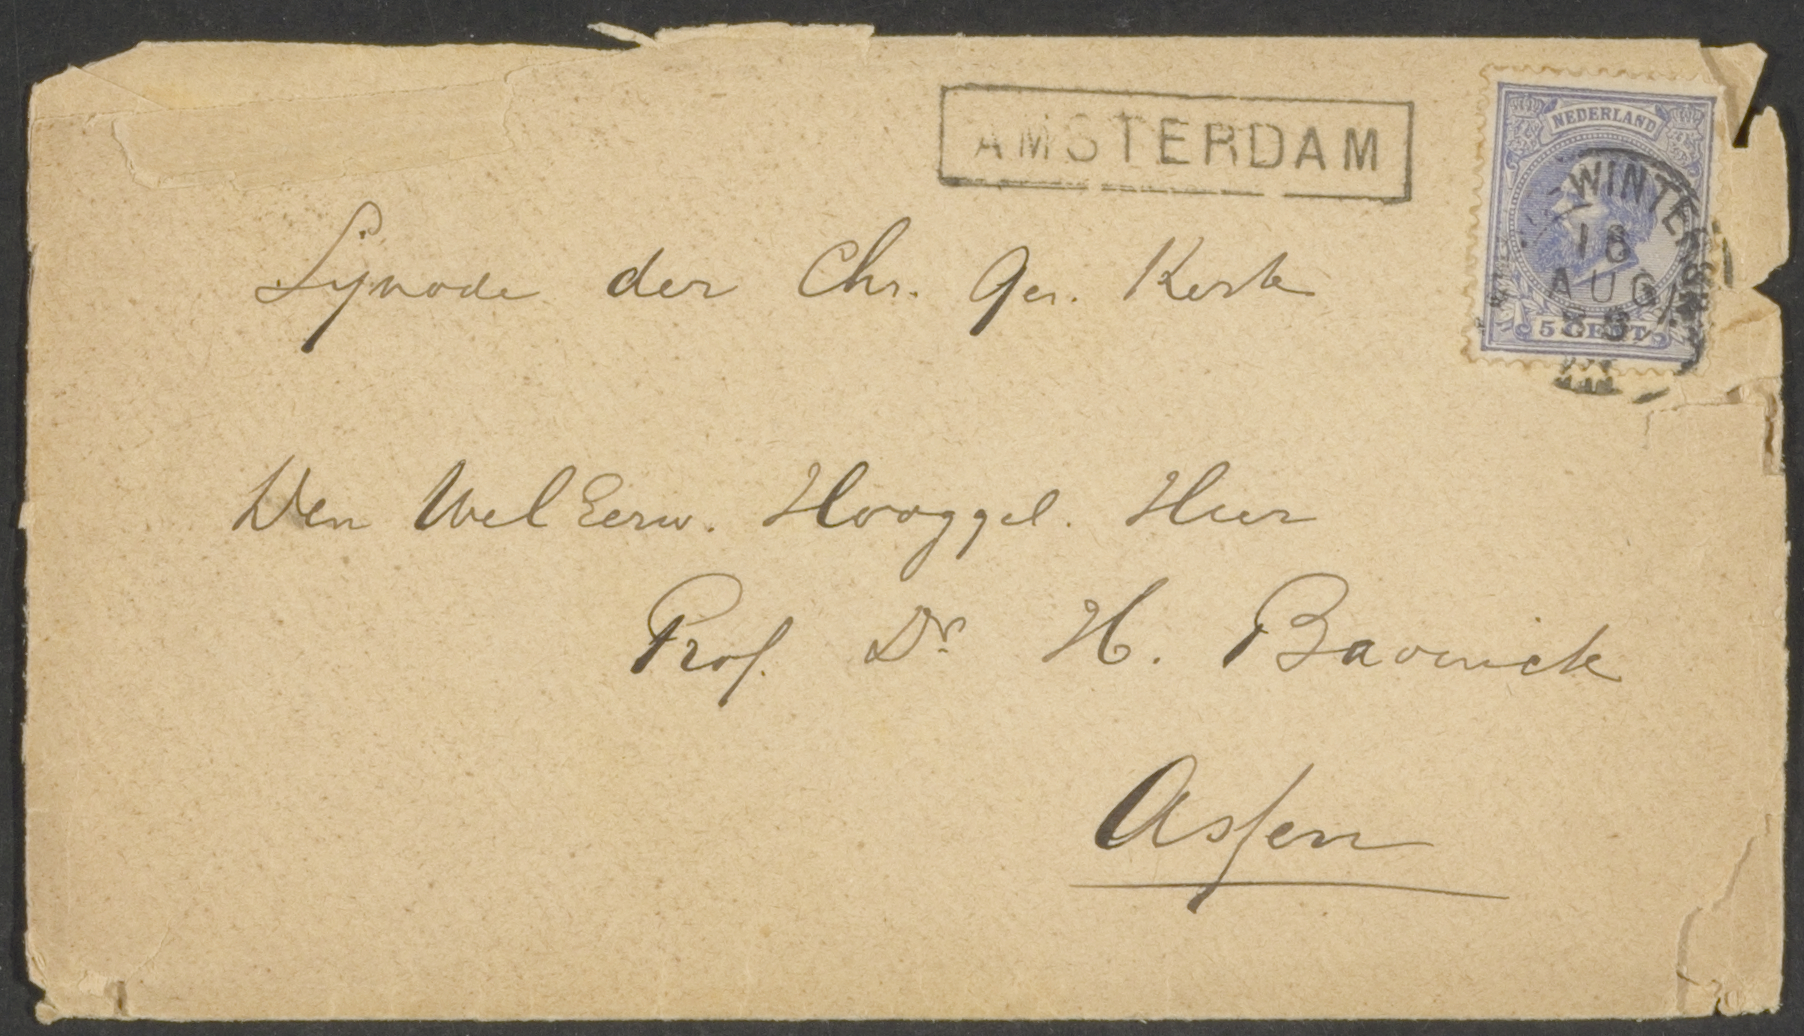 AMSTERDAM
NEDERLAND
WINTERSW
18
AUG
88
5 CENT
Synode der Chr. Ger. Kerk
Den WelEerw. Hooggel. Heer
Prof. Dr. H. Bavinck
Assen